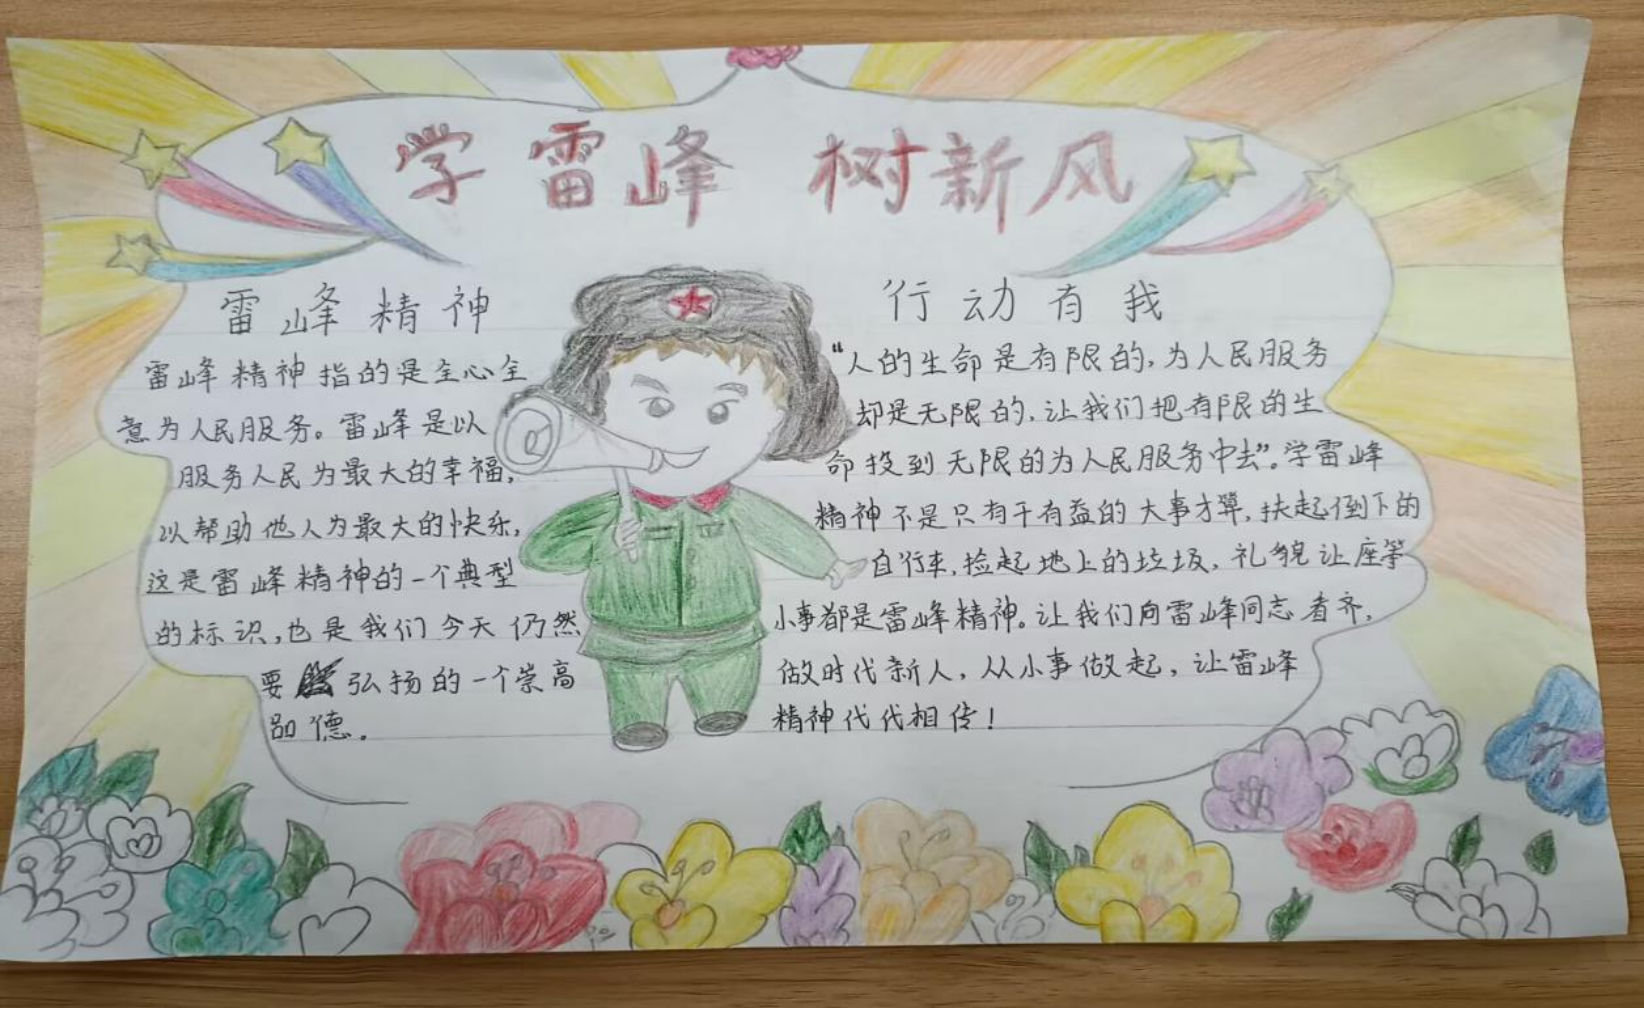 学雷峰 树新风
雷峰精神
雷峰精神指的是全心全
意为人民服务。雷峰是以
服务人民为最大的幸福,
以帮助他人为最大的快乐,
这是雷峰精神的一个典型
的标识,也是我们今天仍然
要弘扬的一个崇高
品德。
行动有我
“人的生命是有限的,为人民服务
却是无限的,让我们把有限的生
命投到无限的为人民服务中去”。学雷峰
精神不是只有干有益的大事才算,扶起倒下的
自行车,捡起地上的垃圾,礼貌让座等
小事都是雷峰精神。让我们向雷峰同志看齐,
做时代新人,从小事做起,让雷峰
精神代代相传!